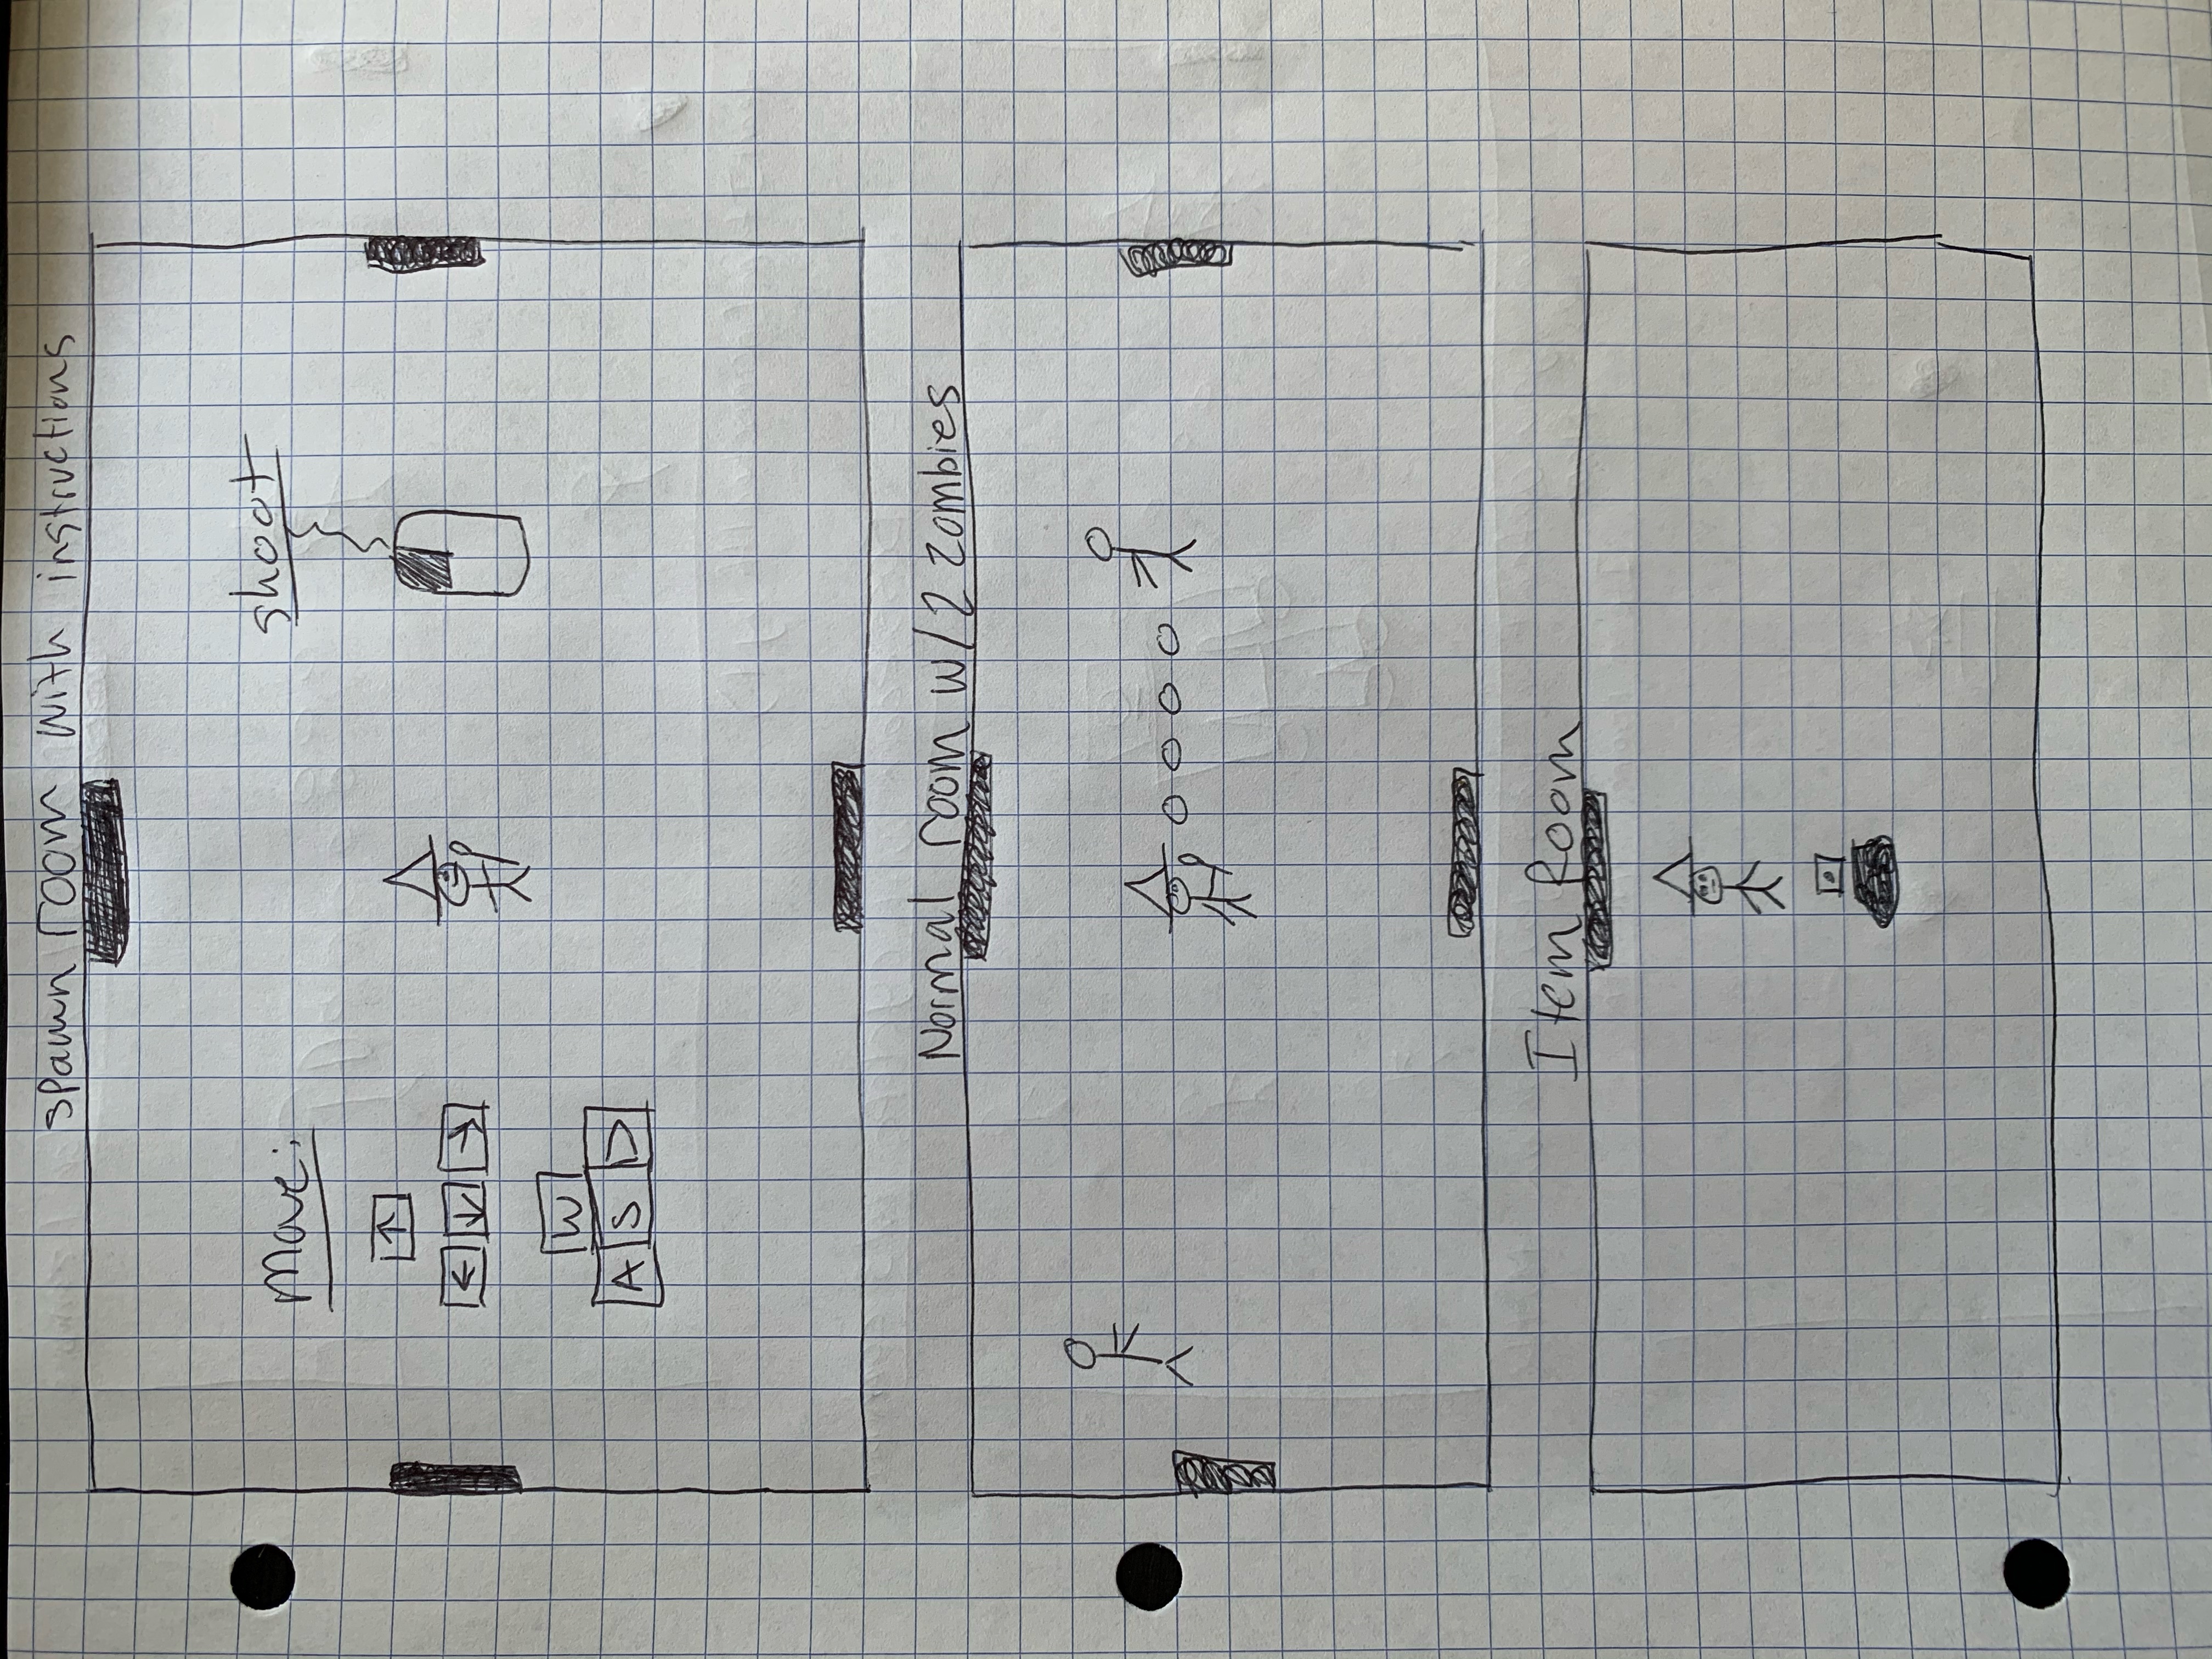 spawn room with instructions
Move:
shoot
↑
← ↓ →
W
A S D
Normal room w/2 zombies
Item Room